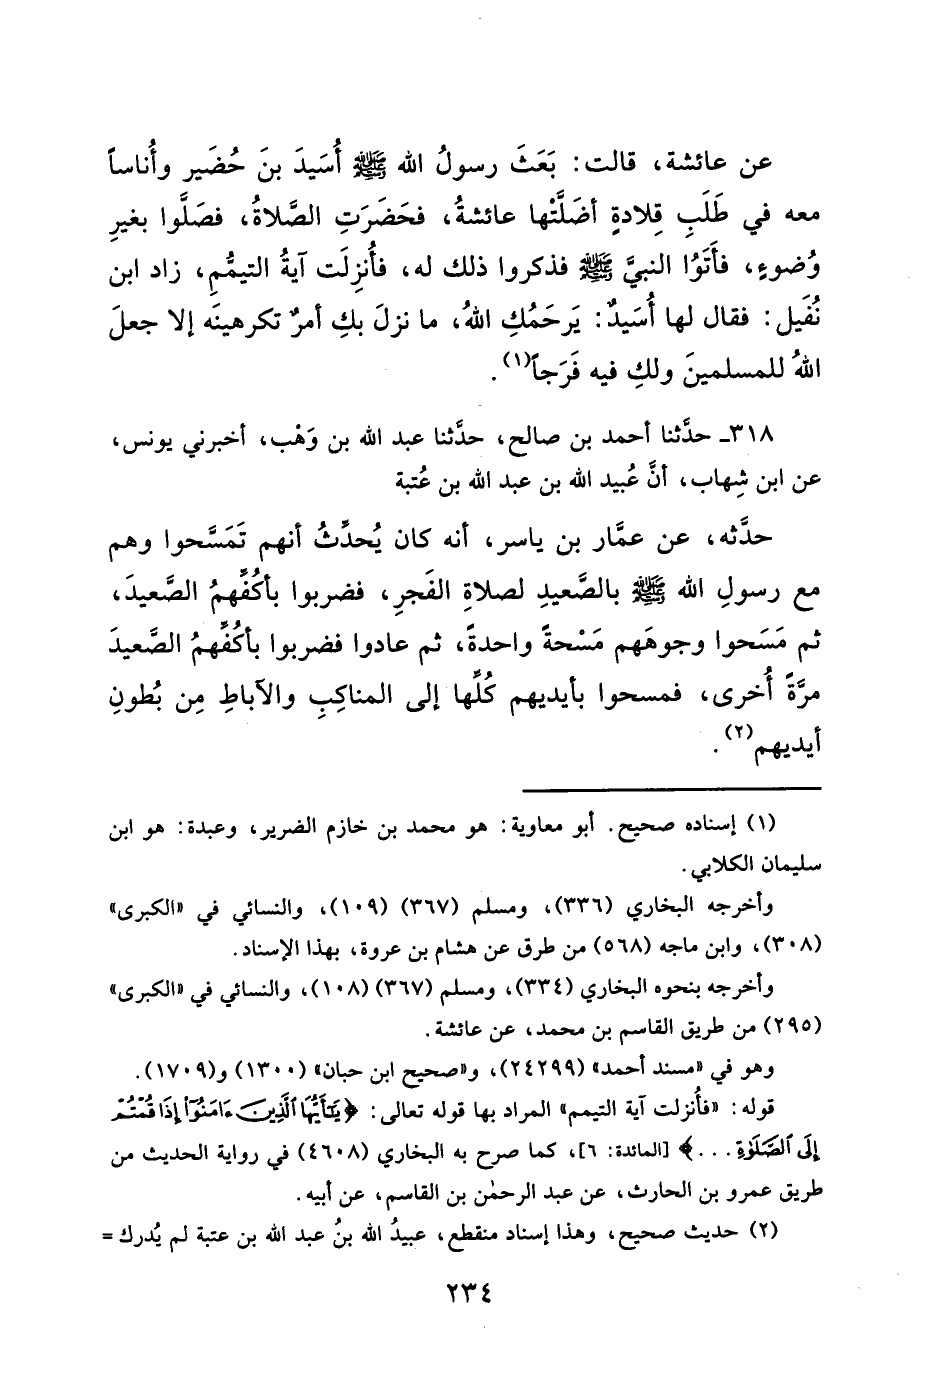 عن عائشة، قالت: بَعَثَ رسولُ الله ﷺ أُسَيدَ بنَ حُضَير وأُناساً
معه في طَلَبِ قِلادةٍ أضَلَّتْها عائشةُ، فحَضَرَتِ الصَّلاةُ، فصَلَّوا بغيرِ
وُضوءٍ، فأَتَوُا النبيَّ ﷺ فذكروا ذلك له، فأُنزِلَت آيةُ التيمُّمِ، زاد ابن
نُفَيل: فقال لها أُسَيدٌ: يَرحَمُكِ اللهُ، ما نزلَ بكِ أمرٌ تكرهينَه إلا جعلَ
اللهُ للمسلمينَ ولكِ فيه فَرَجاً(١).
٣١٨ـ حدَّثنا أحمد بن صالح، حدَّثنا عبد الله بن وَهْب، أخبرني يونس،
عن ابن شِهاب، أنَّ عُبيد الله بن عبد الله بن عُتبة
حدَّثه، عن عمَّار بن ياسر، أنه كان يُحدِّثُ أنهم تَمَسَّحوا وهم
مع رسولِ الله ﷺ بالصَّعيدِ لصلاةِ الفَجرِ، فضربوا بأكُفِّهمُ الصَّعيدَ،
ثم مَسَحوا وجوهَهم مَسْحةً واحدةً، ثم عادوا فضربوا بأكُفِّهمُ الصَّعيدَ
مرَّةً أُخرى، فمسحوا بأيديهم كُلِّها إلى المناكِبِ والآباطِ مِن بُطونِ
أيديهم(٢).
(١) إسناده صحيح. أبو معاوية: هو محمد بن خازم الضرير، وعبدة: هو ابن
سليمان الكلابي.
وأخرجه البخاري (٣٣٦)، ومسلم (٣٦٧) (١٠٩)، والنسائي في «الكبرى»
(٣٠٨)، وابن ماجه (٥٦٨) من طرق عن هشام بن عروة، بهذا الإسناد.
وأخرجه بنحوه البخاري (٣٣٤)، ومسلم (٣٦٧) (١٠٨)، والنسائي في «الكبرى»
(٢٩٥) من طريق القاسم بن محمد، عن عائشة.
وهو في «مسند أحمد» (٢٤٢٩٩)، و«صحيح ابن حبان» (١٣٠٠) و(١٧٠٩).
قوله: «فأُنزلت آية التيمم» المراد بها قوله تعالى: ﴿يَٰٓأَيُّهَا ٱلَّذِينَ ءَامَنُوٓا۟ إِذَا قُمْتُمْ
إِلَى ٱلصَّلَوٰةِ...﴾ [المائدة: ٦]، كما صرح به البخاري (٤٦٠٨) في رواية الحديث من
طريق عمرو بن الحارث، عن عبد الرحمٰن بن القاسم، عن أبيه.
(٢) حديث صحيح، وهذا إسناد منقطع، عبيدُ الله بنُ عبد الله بن عتبة لم يُدرك =
٢٣٤